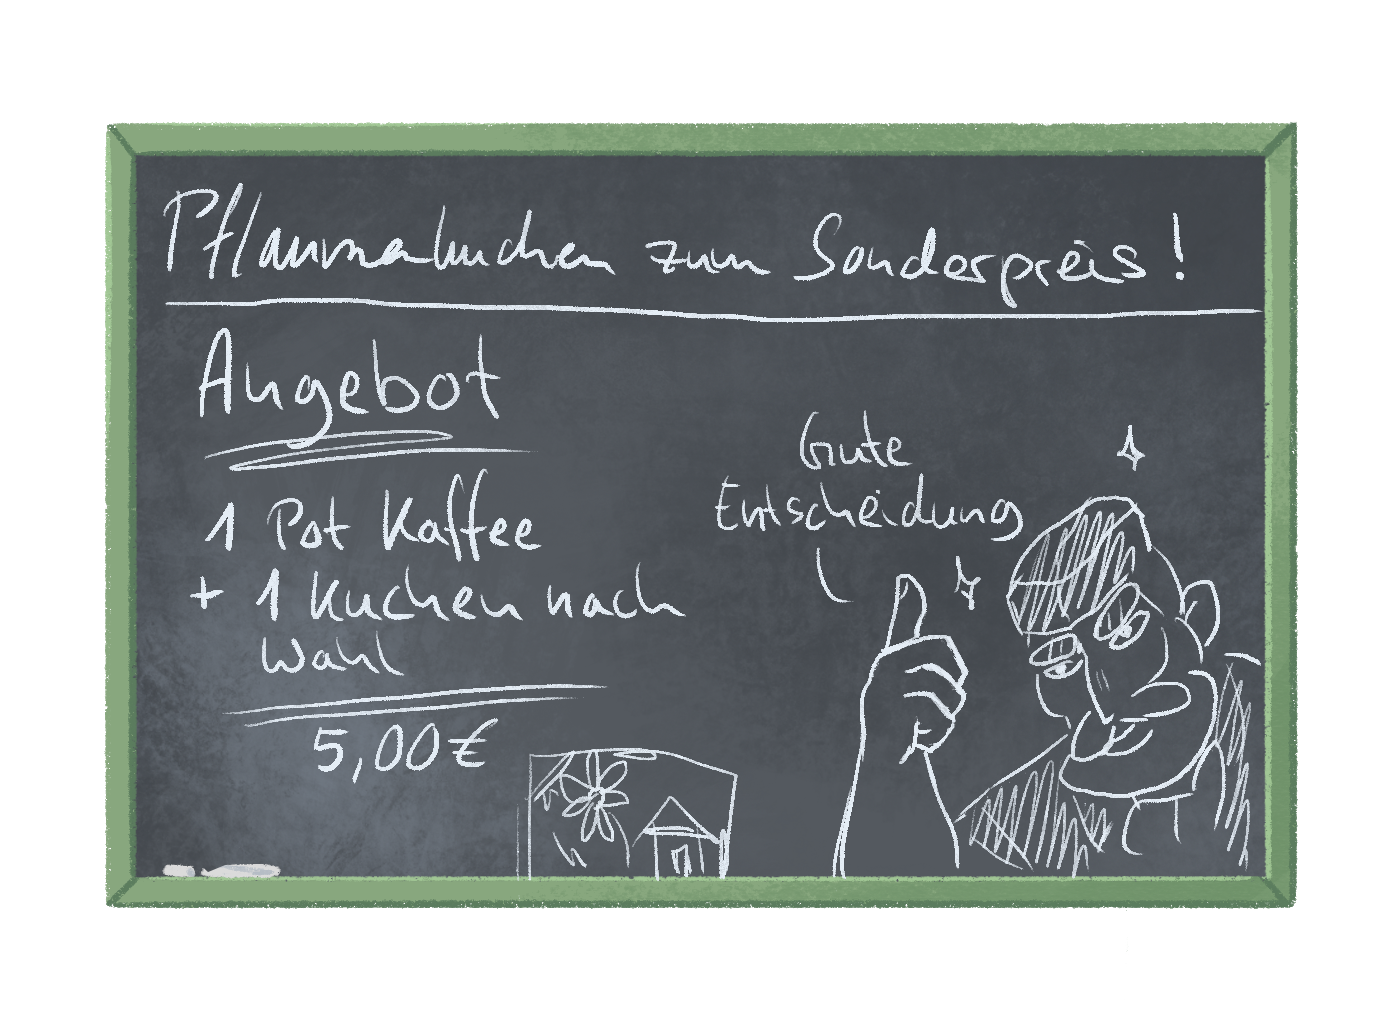 Pflaumenkuchen zum Sonderpreis!
Angebot
1 Pot Kaffee
+ 1 Kuchen nach
Wahl
5,00€
Gute
Entscheidung